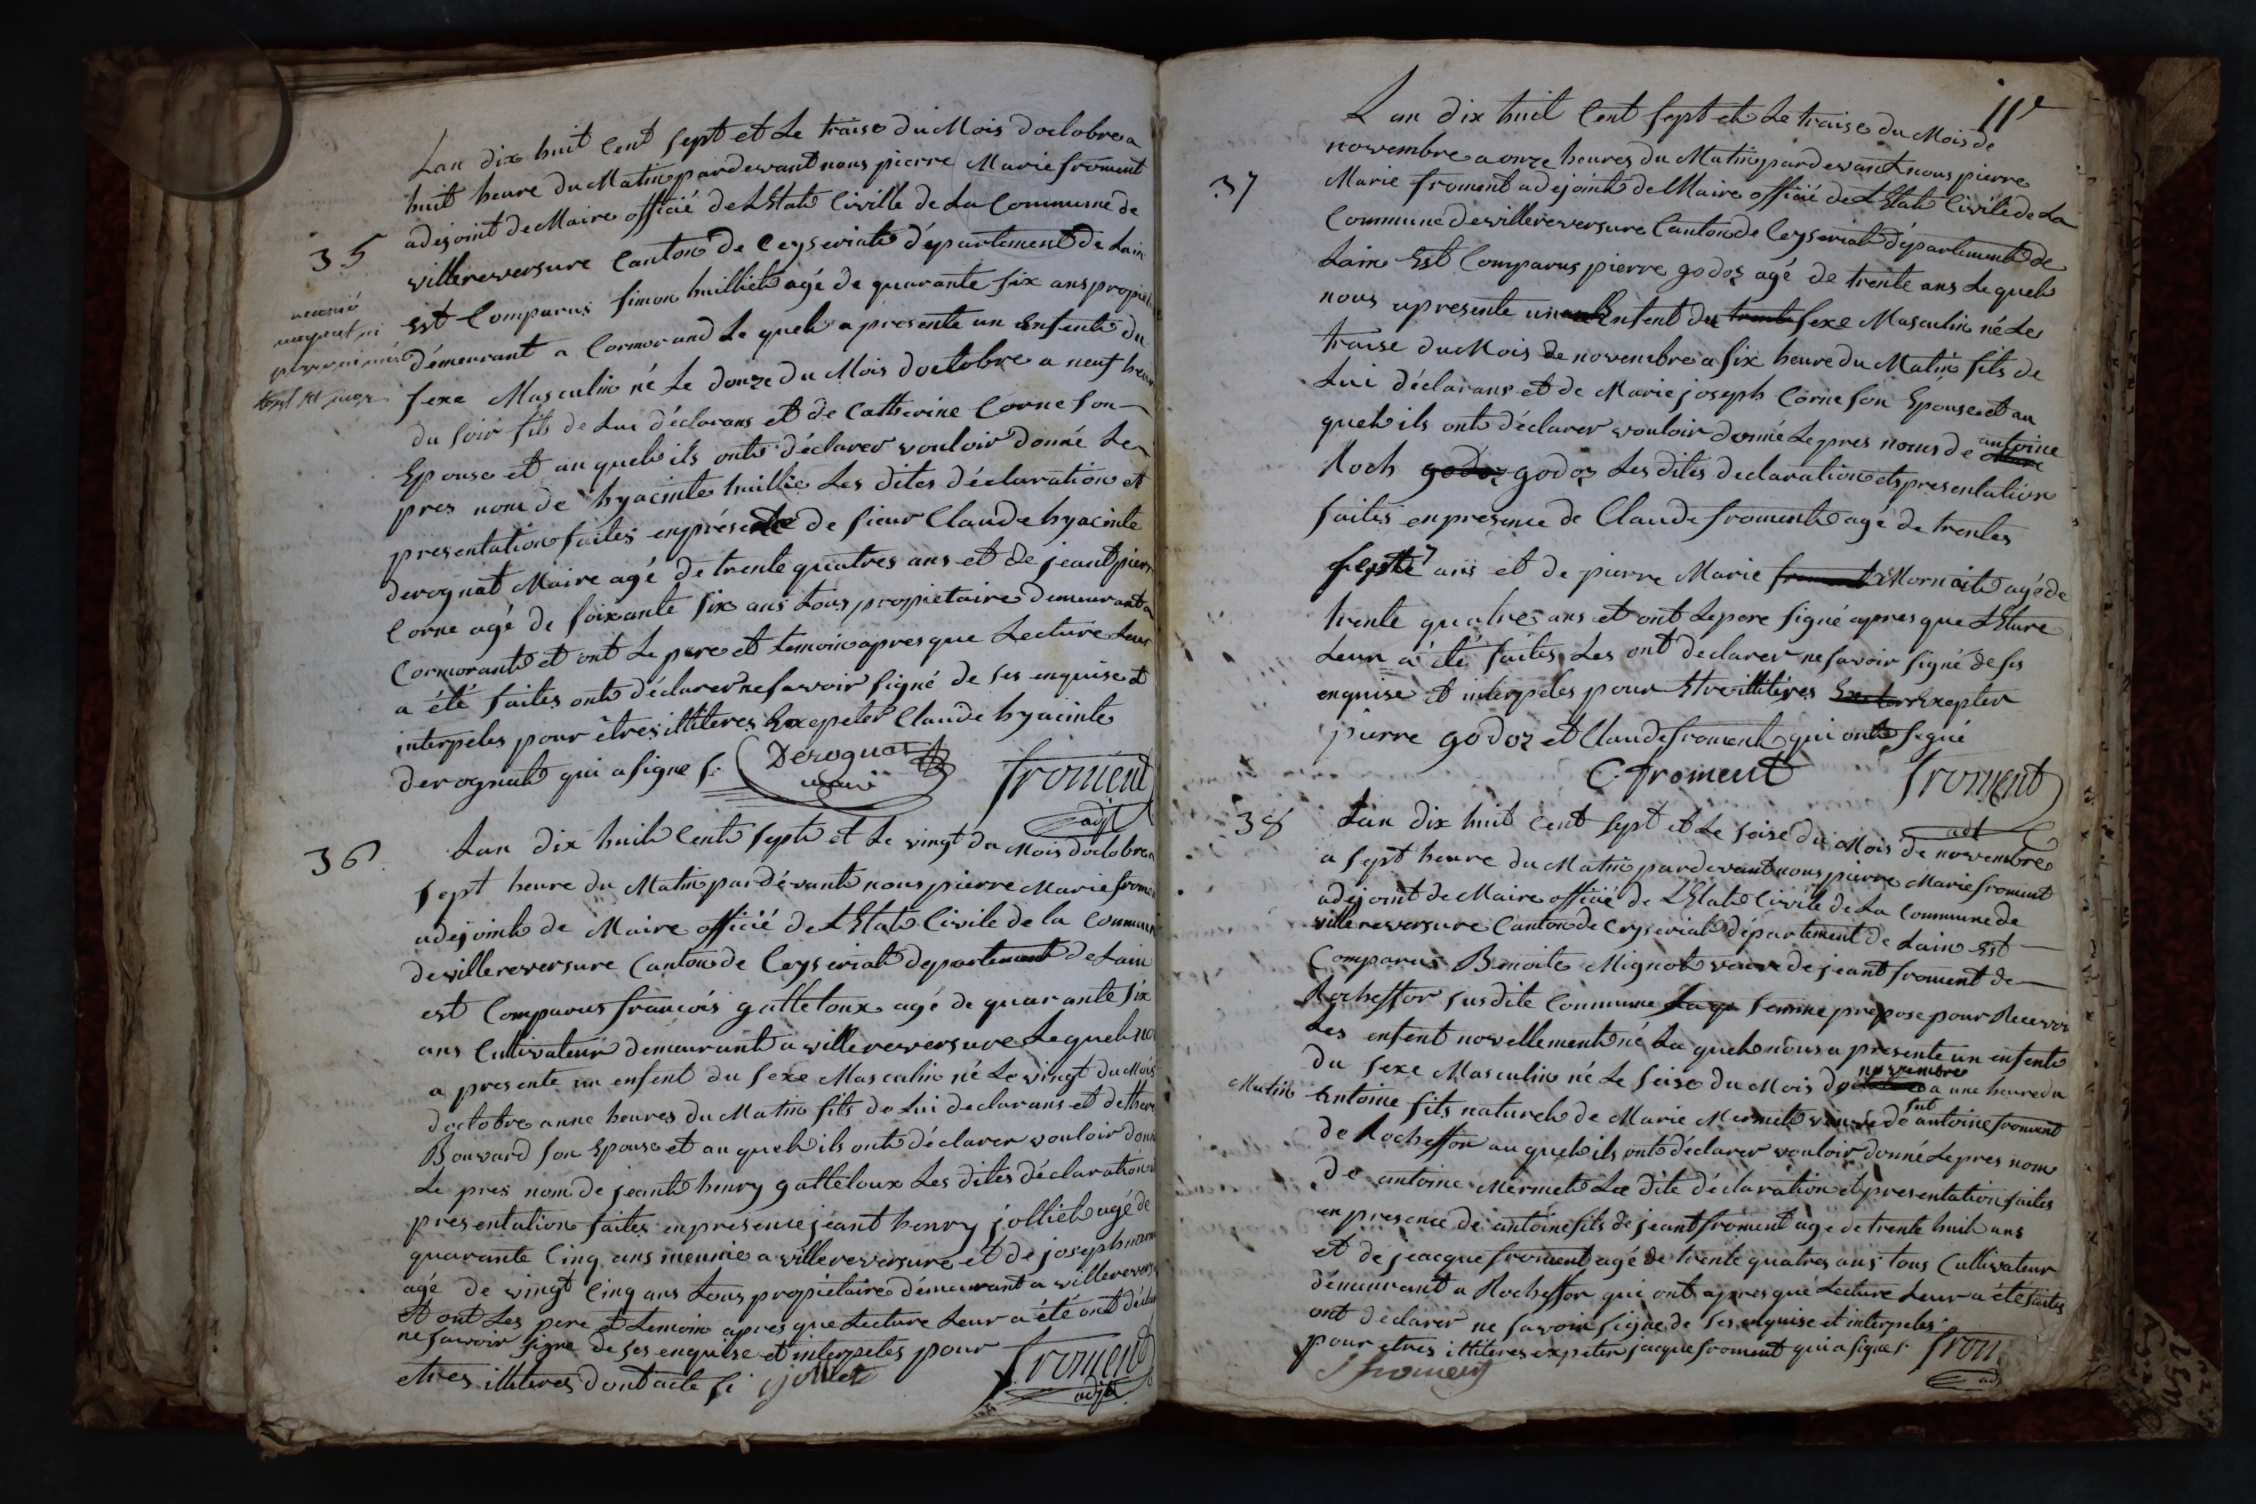 Lan dix huit Cent sept et Le traise du Mois doctobre a
huit heure du Matin pardevant nous pierre Marie froment
adejoint de Maire officié de LEtat Civille de La Commune de
35
villereversure Canton de Ceyseriat département de Lain
est Comparus Simon huilliet agé de quarante six ans propriet
démeurant a Cormorand Le quel a presente un Enfent du
sexe Masculin né Le douze du Mois doctobre a neuf heur
du soir fils de Lui déclarans et de Catherine Corne son
Epouse et au quel ils ont déclarer vouloir donné Le
pres nom de hyacinte huillie Les dites déclaration et
presentation faites en présence de sieur Claude hyacinte
derognat Maire agé de trente quatres ans et de jeant pierr
Corne agé de soixante six ans tous propietaire demeurant a
Cormorant et ont Le pere et temoin apres que Lecture Leur
a été faites ont déclarer ne savoir signé de ses enquise et
interpeles pour êtres illiteres Excepeter Claude hyacinte
derognat qui a signe
Derognat
maire
froment
adjt
36
Lan dix huit Cent sept et Le vingt du Mois doctobre a
sept heure du Matin par dévant nous pierre Marie frome
adejoint de Maire officié de LEtat Civile de la Commun
de villereversure Canton de Ceyseriat departement de Lain
est Comparus francois gatteloux agé de quarante six
ans Cultivateur demeurant a villereversure Lequel nou
a presente un enfent du sexe Masculin né Le vingt du Mois
doctobre a une heures du Matin fils de Lui declarans et de there
Bouvard son Epouse et au quel ils ont déclarer vouloir donn
Le pres nom de jeant henry gatteloux Les dites déclaration
presentation faites en presence jeant henry jolliet agé de
quarante Cinq ans meunie a villereversure et de joseph
agé de vingt Cinq ans tous propietaire démeurant a villerevers
et ont Les pere et temoin apres que Lecture Leur a été ont déclar
ne savoir signe de ses enquise et interpeles pour
etres illiteres dont acte
jolliet
froment
adjt
Lan dix huit Cent sept et Le traise du Mois de
novembre a onze heures du Matin pardevant nous pierre
37
Marie froment adejoint de Maire officié de LEtat Civile de La
Commune de villereversure Canton de Ceyseriat département de
Lain Est Comparus pierre godoz agé de trente ans Le quel
nous a presente un Enfent du sexe Masculin né Le
traise du Mois de novembre a six heure du Matin fils de
Lui déclarans et de Marie joseph Corne son Epouse et au
quel ils ont déclarer vouloir donné Le pres noms de antoine
Roch godoz godoz Les dites declaration et presentation
faites en presence de Claude froment agé de trentes
septe ans et de pierre Marie froment Mornait agé de
trente quatres ans et ont Le pere signé apres que LEture
Leur a été faites Les ont declarer ne savoir signé de ses
enquise et interpeles pour Etre illitéres Exepter
pierre godoz et Claude froment qui ont segné
C. froment
froment
adt
38
Lan dix huit cent sept et Le seise du Mois de novembre
a sept heure du Matin pardevant nous pierre Marie froment
adejoint de Maire officié de LEtat Civile de La Commune de
villereversure Canton de Ceyseriat département de Lain Est
Comparus Benoite Mignot veuve de jeant froment de
Rocheffor susdite Commune femme prepose pour Recevoir
Les enfent novellement né La quel nous a presente un enfent
du sexe Masculin né Le seise du Mois novembre a une heure du
Matin
Antoine fils naturel de Marie Mermet veuve de fut antoine froment
de Rocheffor au quel ils ont déclarer vouloir donné Le pres nom
de antoine Mermet La dite déclaration et presentation faites
en presence de antoine fils de jeant froment agé de trente huit ans
et de jeacque froment agé de trente quatres ans tous Cultivateur
démeurant a Rocheffor qui ont apres que Lecture Leur a été faites
ont declarer ne savoir signe de ses enquise et interpeles
pour etres illiteres expeter jacque froment qui a signes
J froment
from